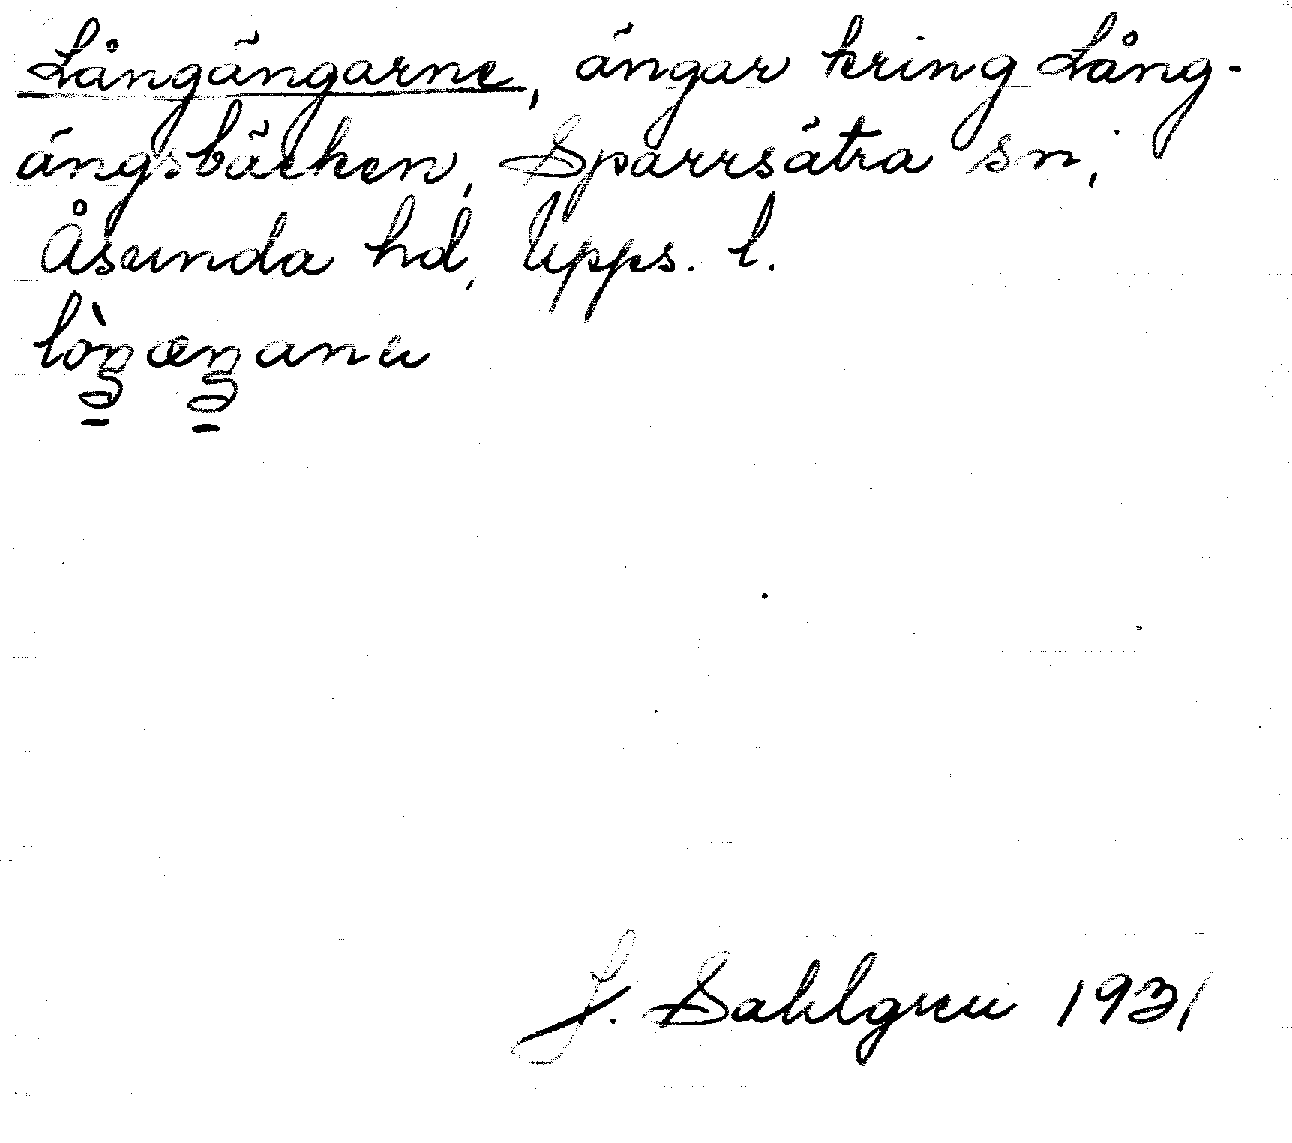 Långängarne, ängar kring Lång-
ängsbäcken, Sparrsätra sn,
Åsunda hd, Upps. l.
lòŋæŋanɐ
J. Sahlgren 1931